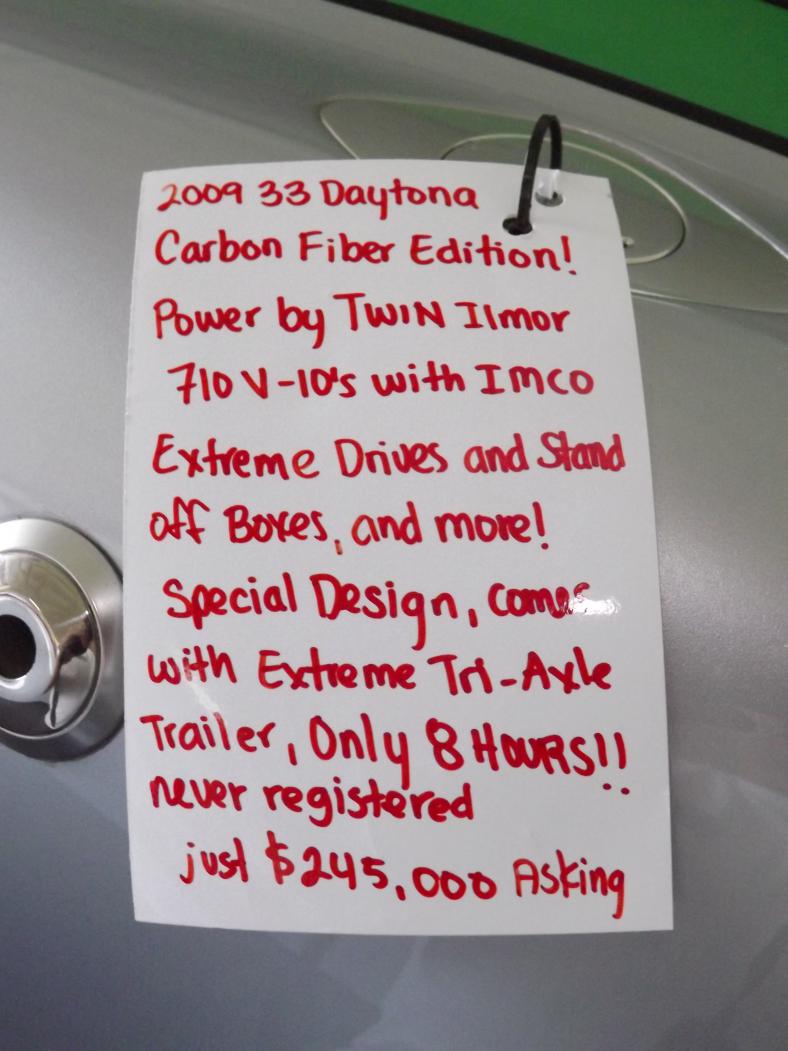 2009 33 Daytona
Carbon Fiber Edition!
Power by TWIN Ilmor
710 V-10's with IMCO
Extreme Drives and Stand
off Boxes, and more!
Special Design, comes
with Extreme Tri-Axle
Trailer, Only 8 HOURS!!
never registered
just $245,000 Asking